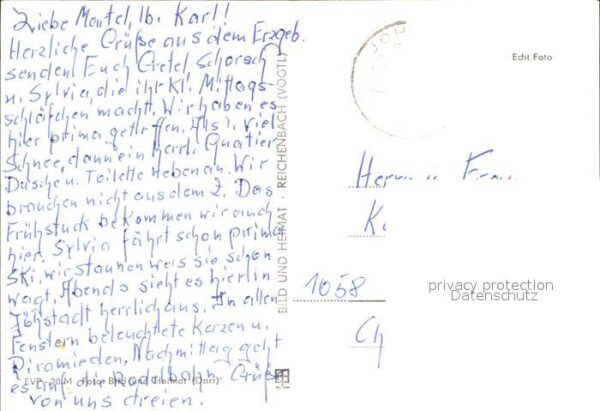 Liebe Mantel, lb. Karl!
Herzliche Grüße aus dem Erzgeb.
senden Euch Gretel Schorsch
u. Sylvia, die ihr Kl. Mittags-
schläfchen macht. Wir haben es
hier prima getroffen. Als 1. viel
Schnee, dann ein herrl. Quatier
Duschen u. Toilette nebenan. Wir
brauchen nicht aus dem Z. Das
Frühstück bekommen wir auch
hier. Sylvia fährt schon prima
Ski, wir staunen was sie schon
wagt. Abends sieht es hier in
Jöhstadt herrlich aus. In allen
Fenstern beleuchtete Kerzen u.
Piramieden. Nachmittag geht
es auf die Rodelbahn. Grüße
von uns dreien.
EVP -,20 M Foto: Bild und Heimat
BILD UND HEIMAT · REICHENBACH (VOGTL)
Echt Foto
Herrn u Frau
K.
1058
Ch
privacy protection
Datenschutz